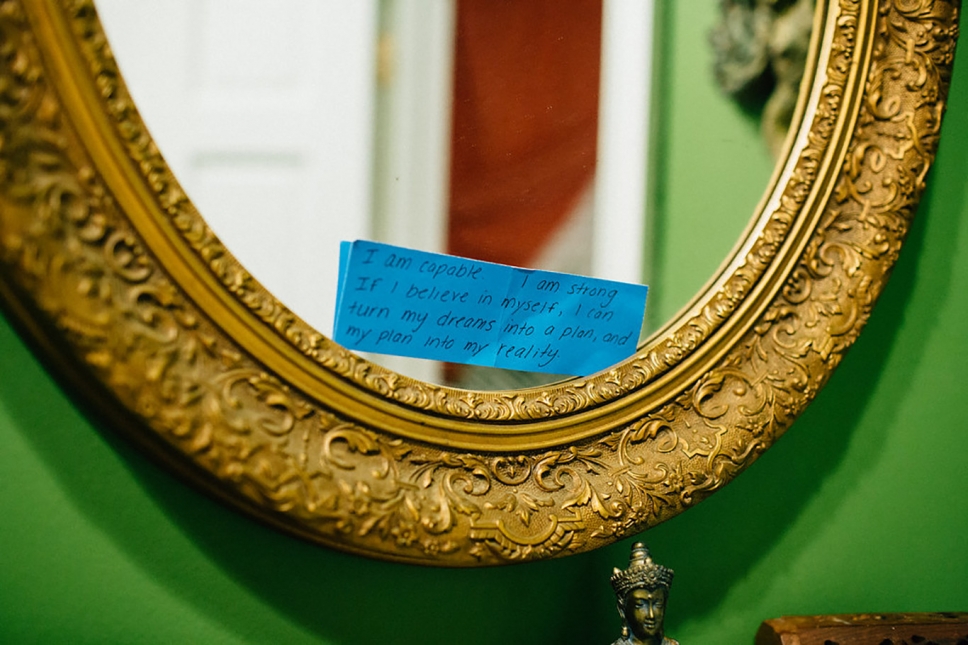 I am capable. I am strong
If I believe in myself, I can
turn my dreams into a plan, and
my plan into my reality.